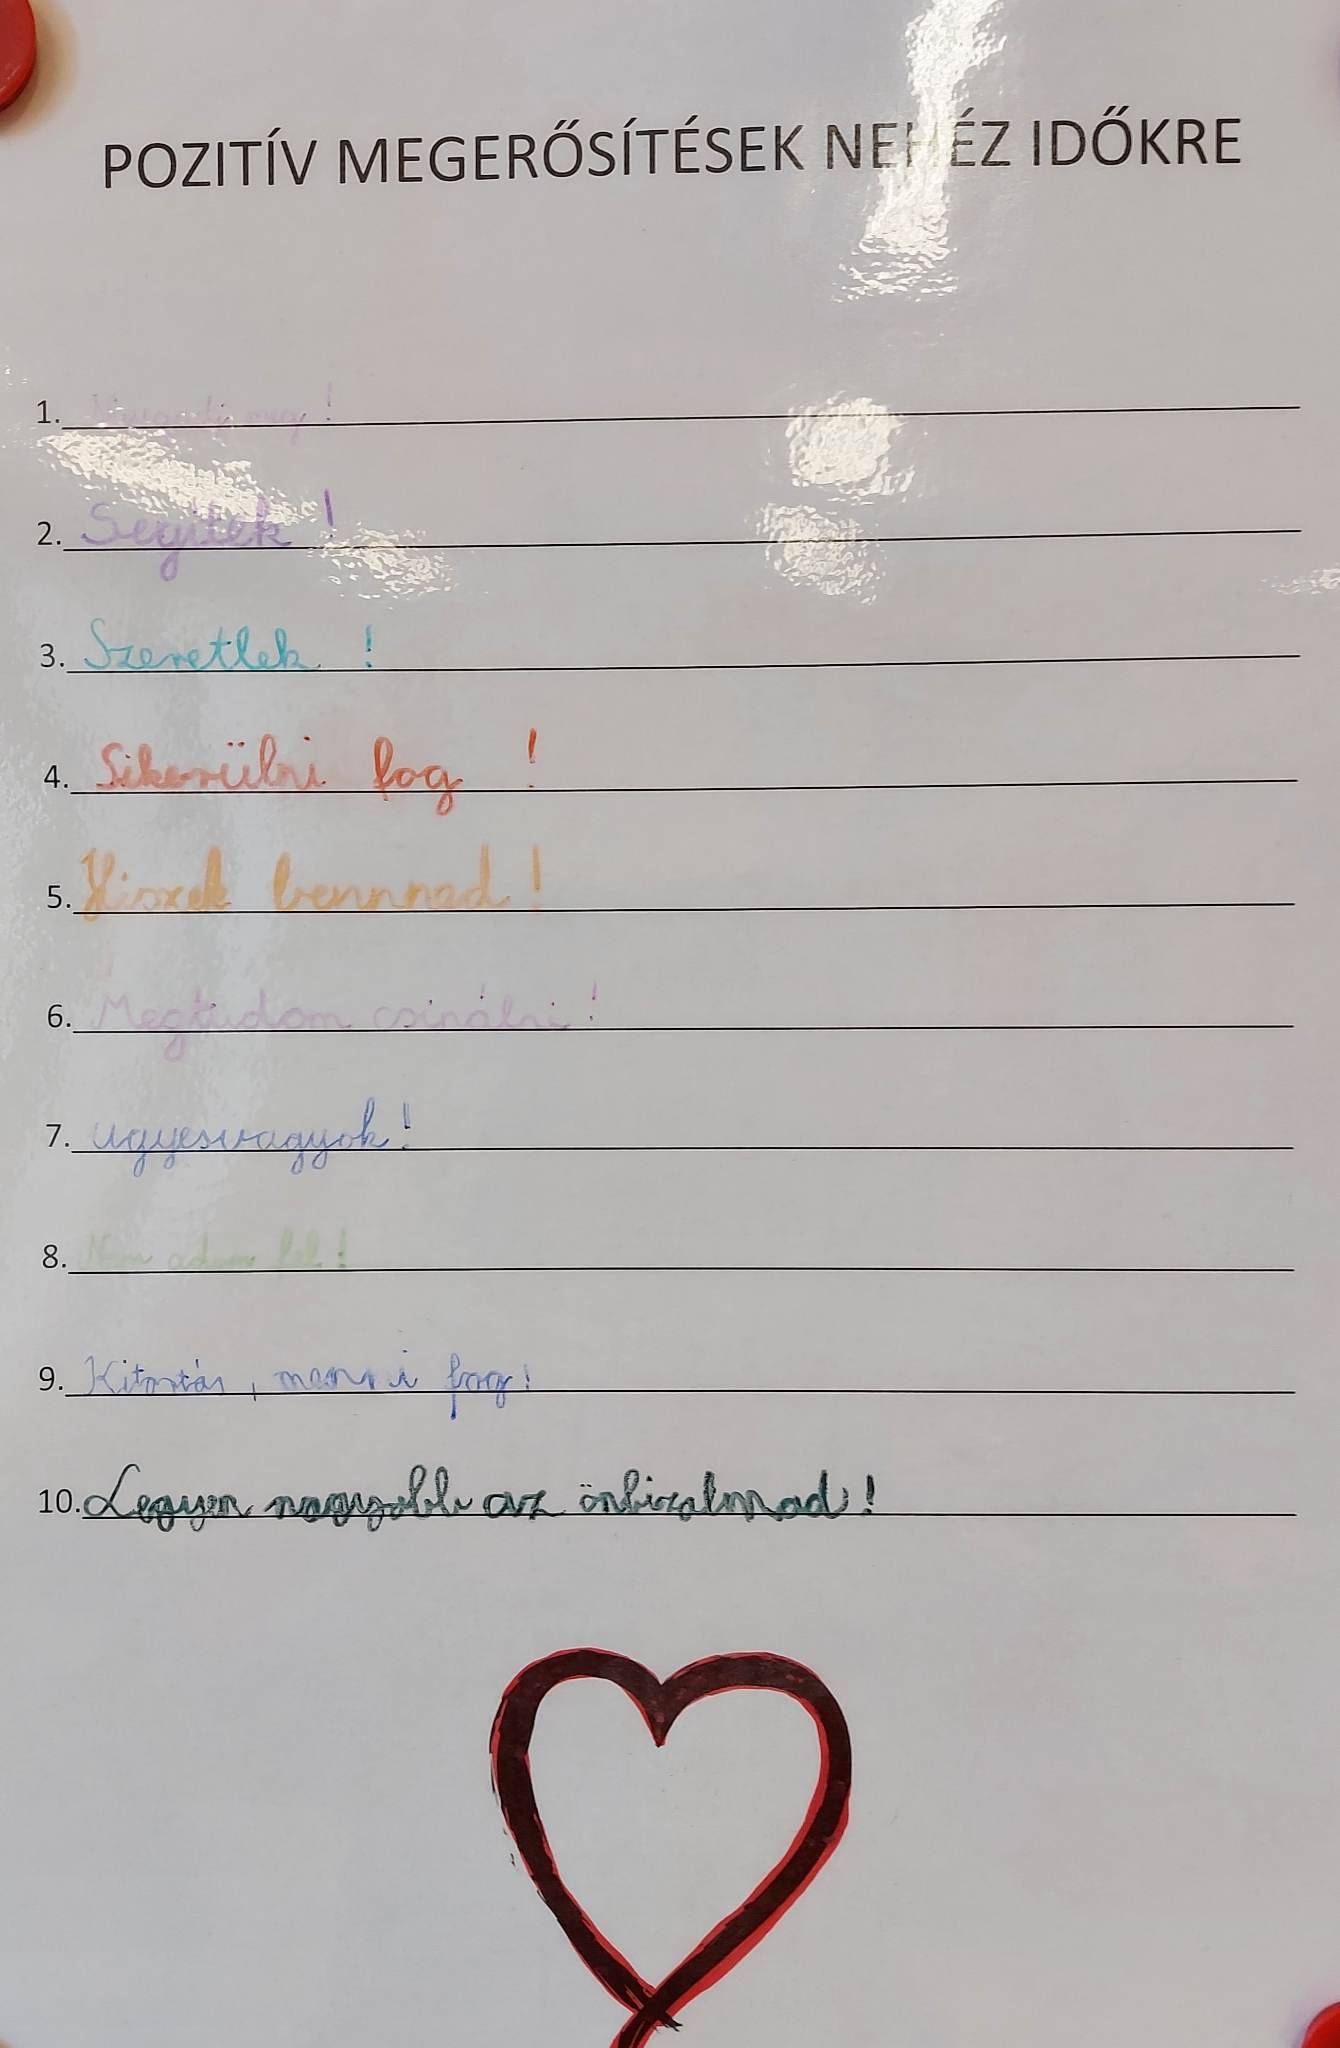 POZITÍV MEGERŐSÍTÉSEK NEHÉZ IDŐKRE
1. Nyugodj meg!
2. Segítek!
3. Szeretlek !
4. Sikerülni fog !
5. Hiszek bennned!
6. Megtudom csinálni!
7. ugyesvagyok!
8. Nem adom fel!
9. Kitartás, menni fog!
10. Legyen nagyobb az önbizalmad!